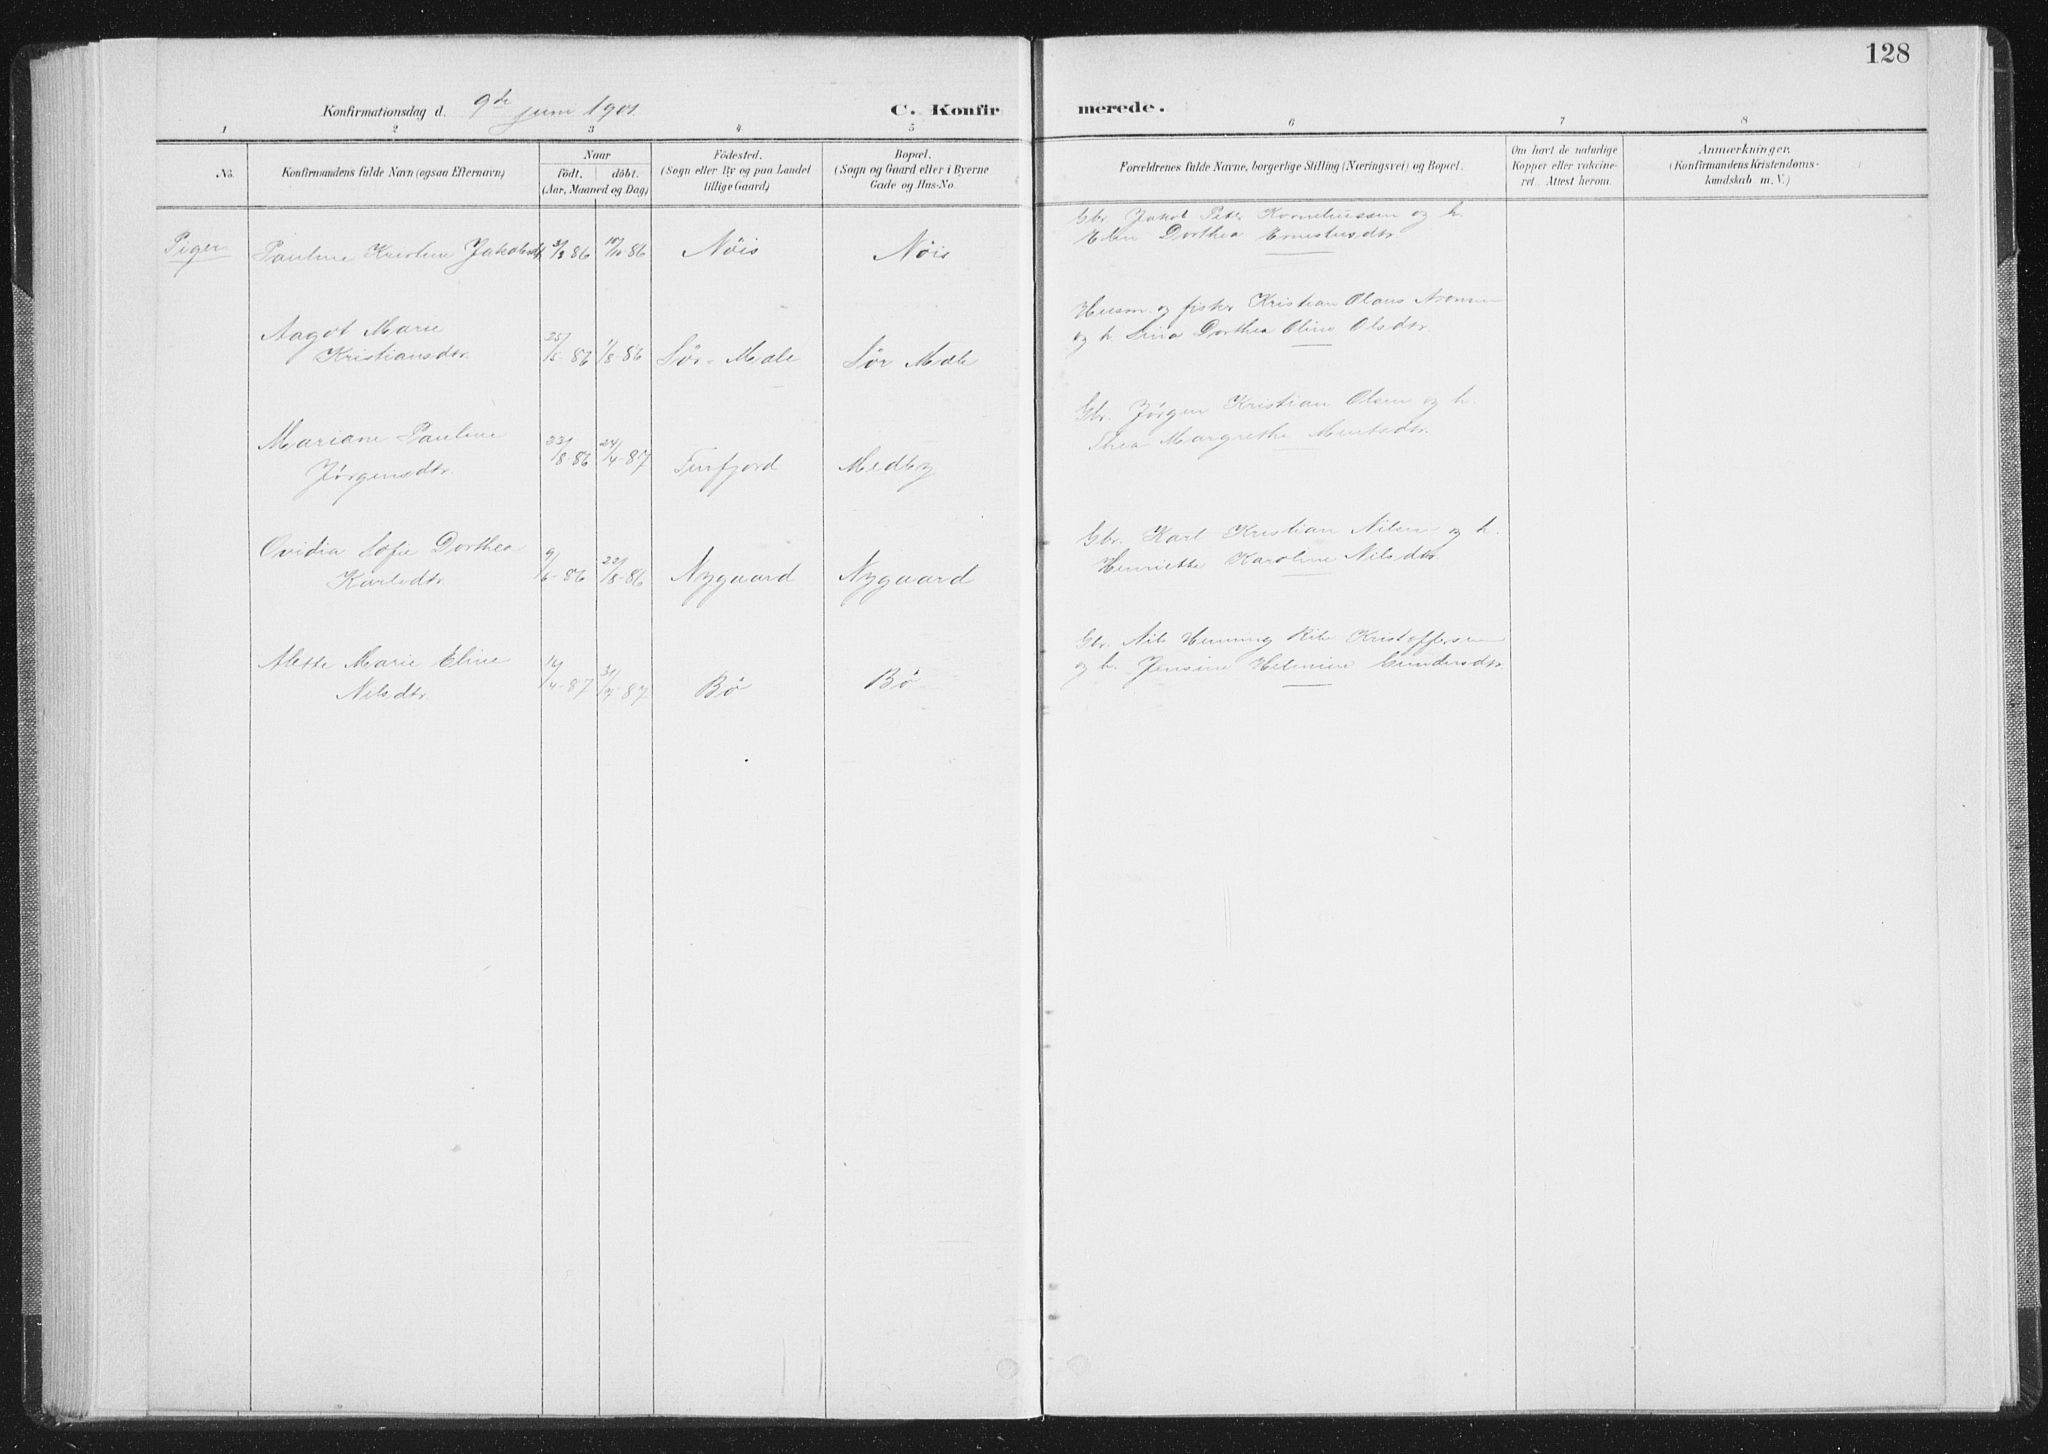 128
Konfirmationsdag d. 9de juni 1901.
C. Konfirmerede.
1 2 3 4 5 6 7 8
No.
Konfirmandens fulde Navn (ogsaa Efternavn)
Naar
födt. döbt.
(Aar, Maaned og Dag)
Födested.
(Sogn eller By og paa Landet
tillige Gaard)
Bopæl.
(Sogn og Gaard eller i Byerne
Gade og Hus-No.
Forældrenes fulde Navne, borgerlige Stilling (Næringsvei) og Bopæl.
Om havt de naturlige
Kopper eller vakcine-
ret. Attest herom.
Anmærkninger.
(Konfirmandens Kristendoms-
kundskab m. V.)
Gbr. Jakob Peter Korneliussen og h.
Elen Dorthea Ernstusdtr.
Piger Pauline Kristine Jakobsdtr 3/3 86 10/10 86 Nöis Nöis
Husm. og fisker Kristian Olaus Aronsen
og h. Lina Dorthea Oline Olsdtr.
Aagot Marie
Kristiansdtr. 25/5-86 1/8-86 Sør-Mæle Sør Mæle
Gbr. Jørgen Kristian Olsen og h.
Thea Margrethe Mentsdtr.
Mariane Pauline
Jørgensdtr. 23/8-86 24/4-87 Finfjord Medby
Gbr. Karl Kristian Nilsen og h.
Henriette Karoline Nilsdtr.
Ovidia Sofie Dorthea
Karlsdtr. 9/6-86 22/8-86 Nygaard Nygaard
Gbr. Nils Henning Kristoffersen
og h. Jensine Helmine Gundersdtr.
Alette Marie Eline
Nilsdtr. 14/4-87 31/7-87 Bö Bö